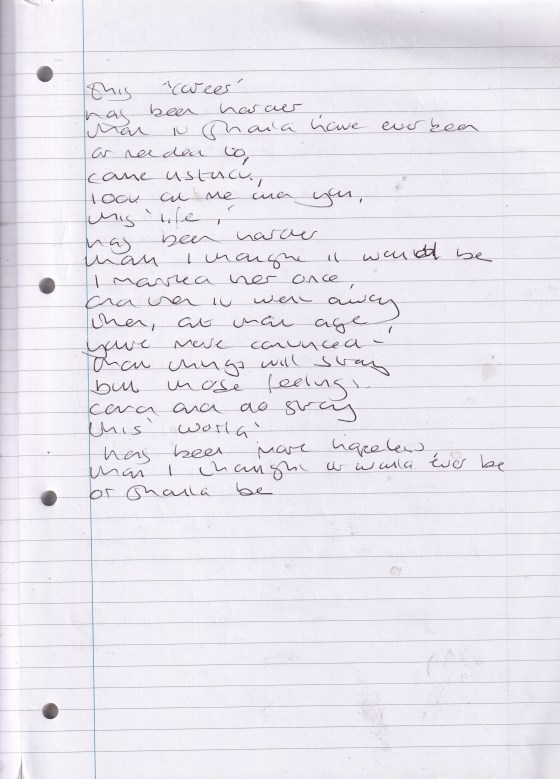 this 'career'
has been harder
than it should have ever been
or needed to,
came unstuck,
look at me and you,
this 'life,'
has been harder
than I thought it would be
I married her once,
and then it went away
then, at that age,
you're more convinced -
that things will stay
but those feelings
can and do stray
this 'world'
has been more hopeless,
than I thought it would ever be
or should be